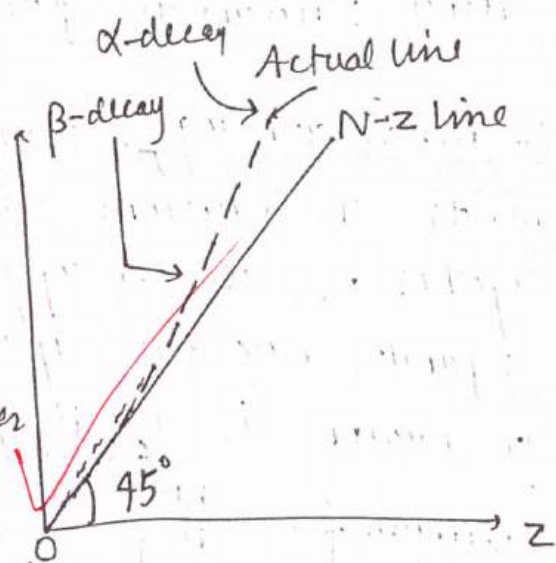 α-decay
Actual line
β-decay
N-Z line
45°
O
Z